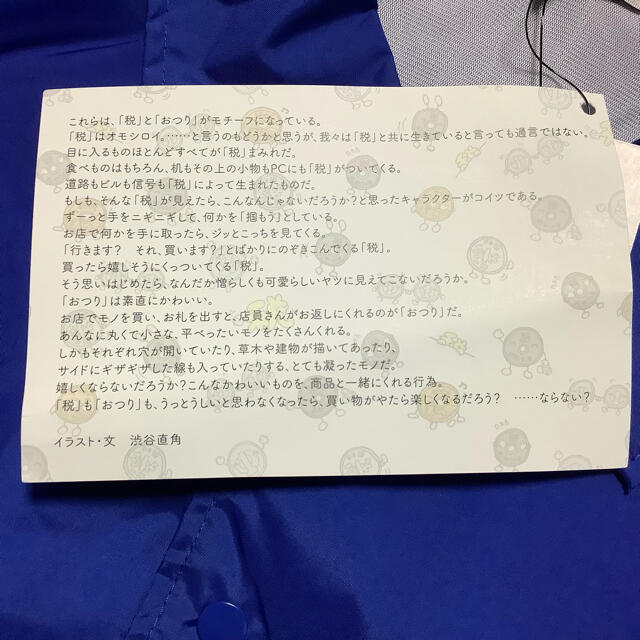 これらは、「税」と「おつり」がモチーフになっている。
「税」はオモシロイ……と言うのもどうかと思うが、我々は「税」と共に生きていると言っても過言ではない。
目に入るものほとんどすべてが「税」まみれだ。
食べものはもちろん、机もその上の小物もPCにも「税」がついてくる。
道路もビルも信号も「税」によって生まれたものだ。
もしも、そんな「税」が見えたら、こんなんじゃないだろうか？と思ったキャラクターがコイツである。
ずーっと手をニギニギして、何かを「掴もう」としている。
お店で何かを手に取ったら、ジッとこっちを見てくる。
「行きます？　それ、買います？」とばかりにのぞきこんでくる「税」。
買ったら嬉しそうにくっついてくる「税」。
そう思いはじめたら、なんだか憎らしくも可愛らしいヤツに見えてこないだろうか。
「おつり」は素直にかわいい。
お店でモノを買い、お札を出すと、店員さんがお返しにくれるのが「おつり」だ。
あんなに丸くて小さな、平べったいモノをたくさんくれる。
しかもそれぞれ穴が開いていたり、草木や建物が描いてあったり、
サイドにギザギザした線も入っていたりする、とても凝ったモノだ。
嬉しくならないだろうか？こんなかわいいものを、商品と一緒にくれる行為。
「税」も「おつり」も、うっとうしいと思わなくなったら、買い物がやたら楽しくなるだろう？　……ならない？
イラスト・文　渋谷直角